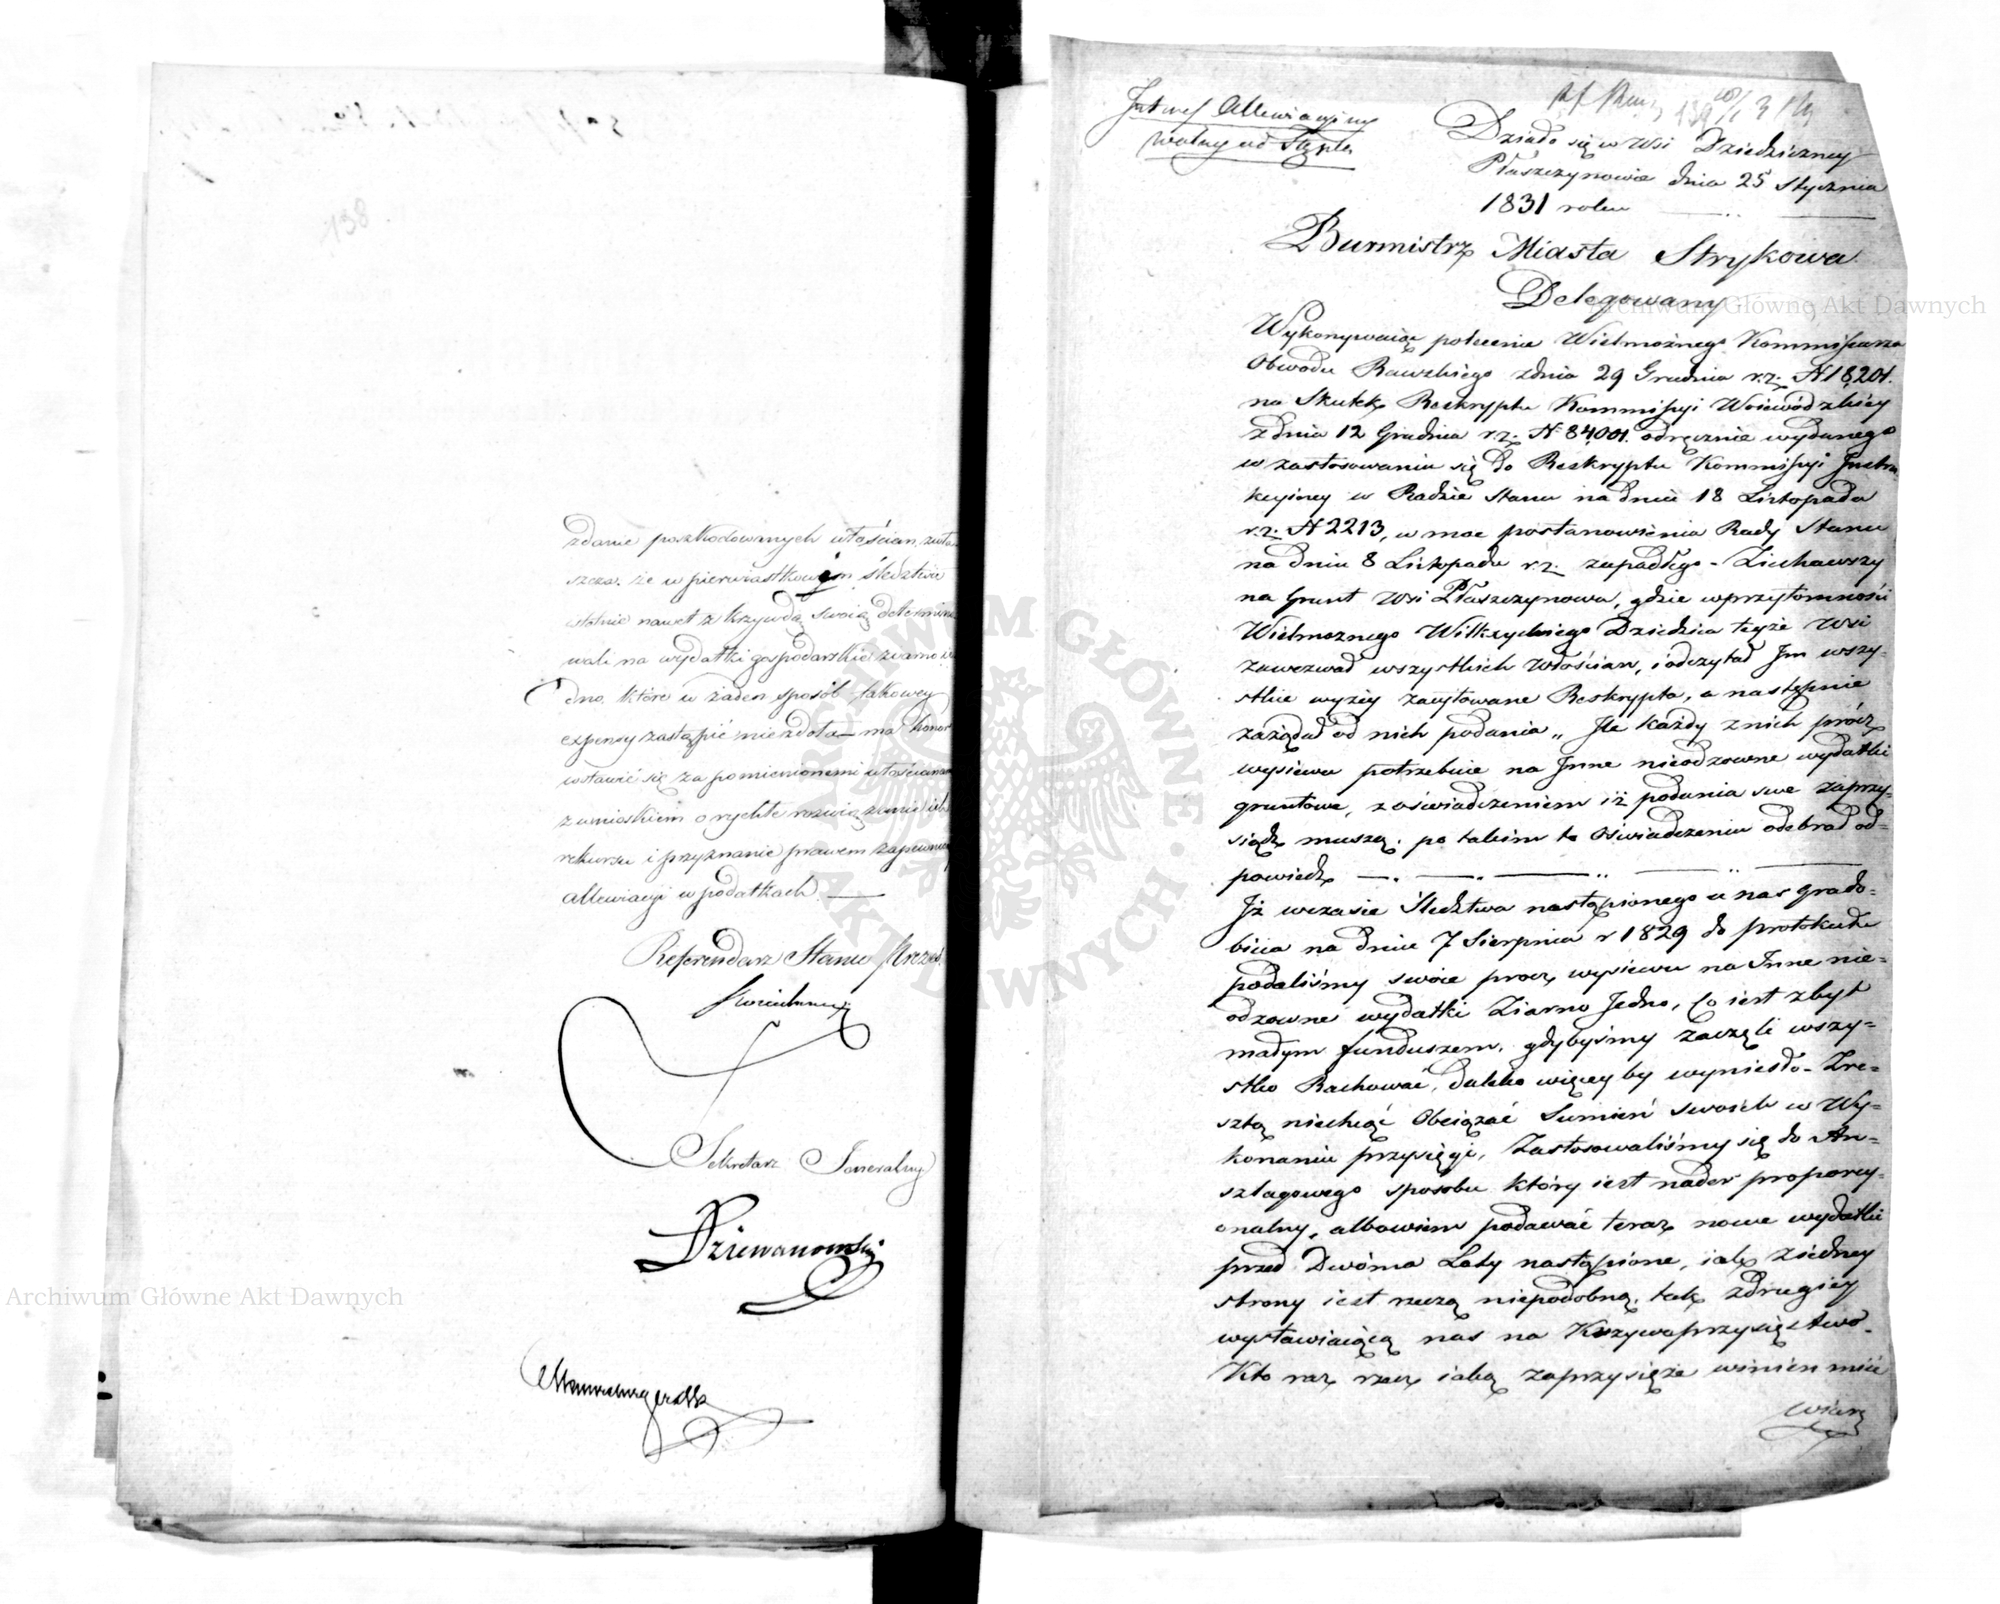 138
zdanie poszkodowanych włościan, zwła
szcza, że w pierwiastkowym śledztwie
istotnie nawet z krzywdą swoią determino
wali na wydatki gospodarskie ziarno ie
dno, które w żaden sposób takowey
expensy zastąpić nie zdoła — ma honor
wstawić się za pomienionemi włościanami
z wnioskiem o rychłe rozwiązanie ich
rekursu i przyznanie prawem zapewnioney
allewiacyi w podatkach. —
Referendarz Stanu Prezes
Sekretarz Jeneralny
Dziewanowski
Interes Allewiacyiny
wolny od Stępla
139
Działo się w Wsi Dziedziczney
Płaszczynowie dnia 25 Stycznia
1831 roku
Burmistrz Miasta Strykowa
Delegowany
Wykonywaiąc polecenie Wielmożnego Kommissarza
Obwodu Rawskiego z dnia 29 Grudnia r.z. N 18,201.
na Skutek Reskryptu Kommissyi Woiewódzkiey
z dnia 12 Grudnia r.z. N 84,001. odręcznie wydanego
w zastosowaniu się do Reskryptu Kommissyi Instru
kcyiney w Radzie Stanu na dniu 18 Listopada
r.z. N 2213, w moc postanowienia Rady Stanu
na dniu 8 Listopada r.z. zapadłego - Ziechawszy
na Grunt Wsi Płaszczynowa, gdzie w przytomności
Wielmożnego Wilkszyckiego Dziedzica teyże Wsi
zawezwał wszystkich Włościan, i odczytał Im wszy-
stkie wyżey zacytowane Reskrypta, a następnie
zażądał od nich podania „ Ile każdy z nich prócz
wysiewu potrzebuie na Inne nieodzowne wydatki
gruntowe, z oświadczeniem iż podania swe zaprzy-
siądz muszą, po takim to Oświadczeniu odebrał od-
powiedz
Iż w czasie Śledztwa nastąpionego u nas grado-
bicia na dniu 7 Sierpnia r 1829 do protokułu
podaliśmy swoie prócz wysiewu na Inne nie-
odzowne wydatki Ziarno Jedno, Co iest zbyt
małym funduszem, gdybyśmy zaczęli wszy-
stko Rachować, daleko więcey by wyniosło - Zre-
sztą niechcąc Obciążać Sumień swoich w Wy-
konaniu przysięgi, Zastosowaliśmy się do An-
szlagowego sposobu który iest nader proporcy-
onalny, albowiem podawać teraz nowe wydatki
przed Dwóma Laty nastąpione, iak z iedney
strony iest rzeczą niepodobną, tak z drugiey
wystawiaiącą nas na Krzywoprzysięstwo.
Kto raz rzecz iaką zaprzysięże winien mieć
wiarę
Archiwum Główne Akt Dawnych
Archiwum Główne Akt Dawnych
ARCHIWUM GŁÓWNE • AKT DAWNYCH •